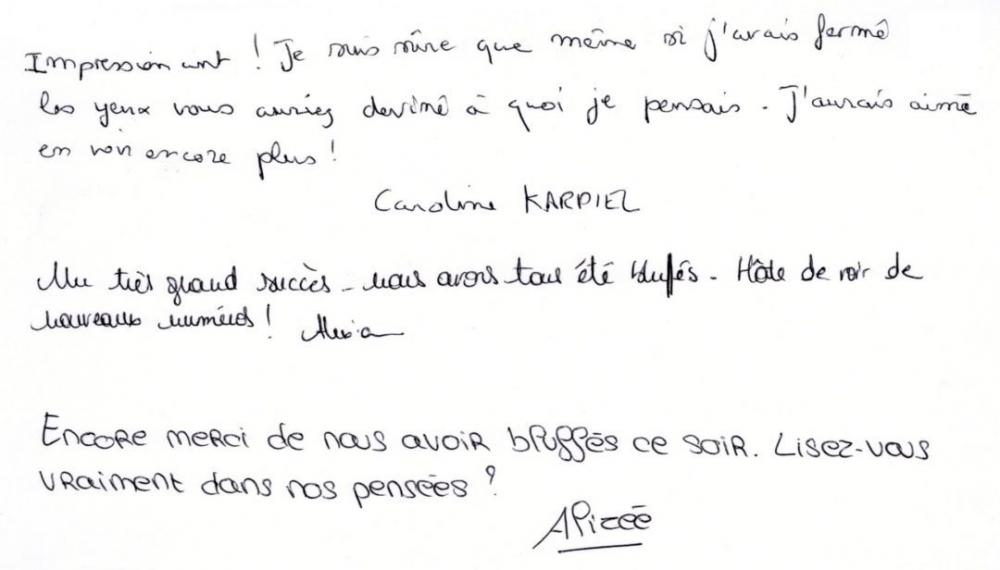 Impressionant ! Je suis sûre que même si j'avais fermé
les yeux vous auriez deviné à quoi je pensais. J'aurais aimé
en voir encore plus !
Caroline KARPIEL
Un très grand succès - nous avons tous été bluffés - Hâte de voir de
nouveaux numéros !  Alexia
Encore merci de nous avoir bluffés ce soir. Lisez-vous
vraiment dans nos pensées ?
Alizée